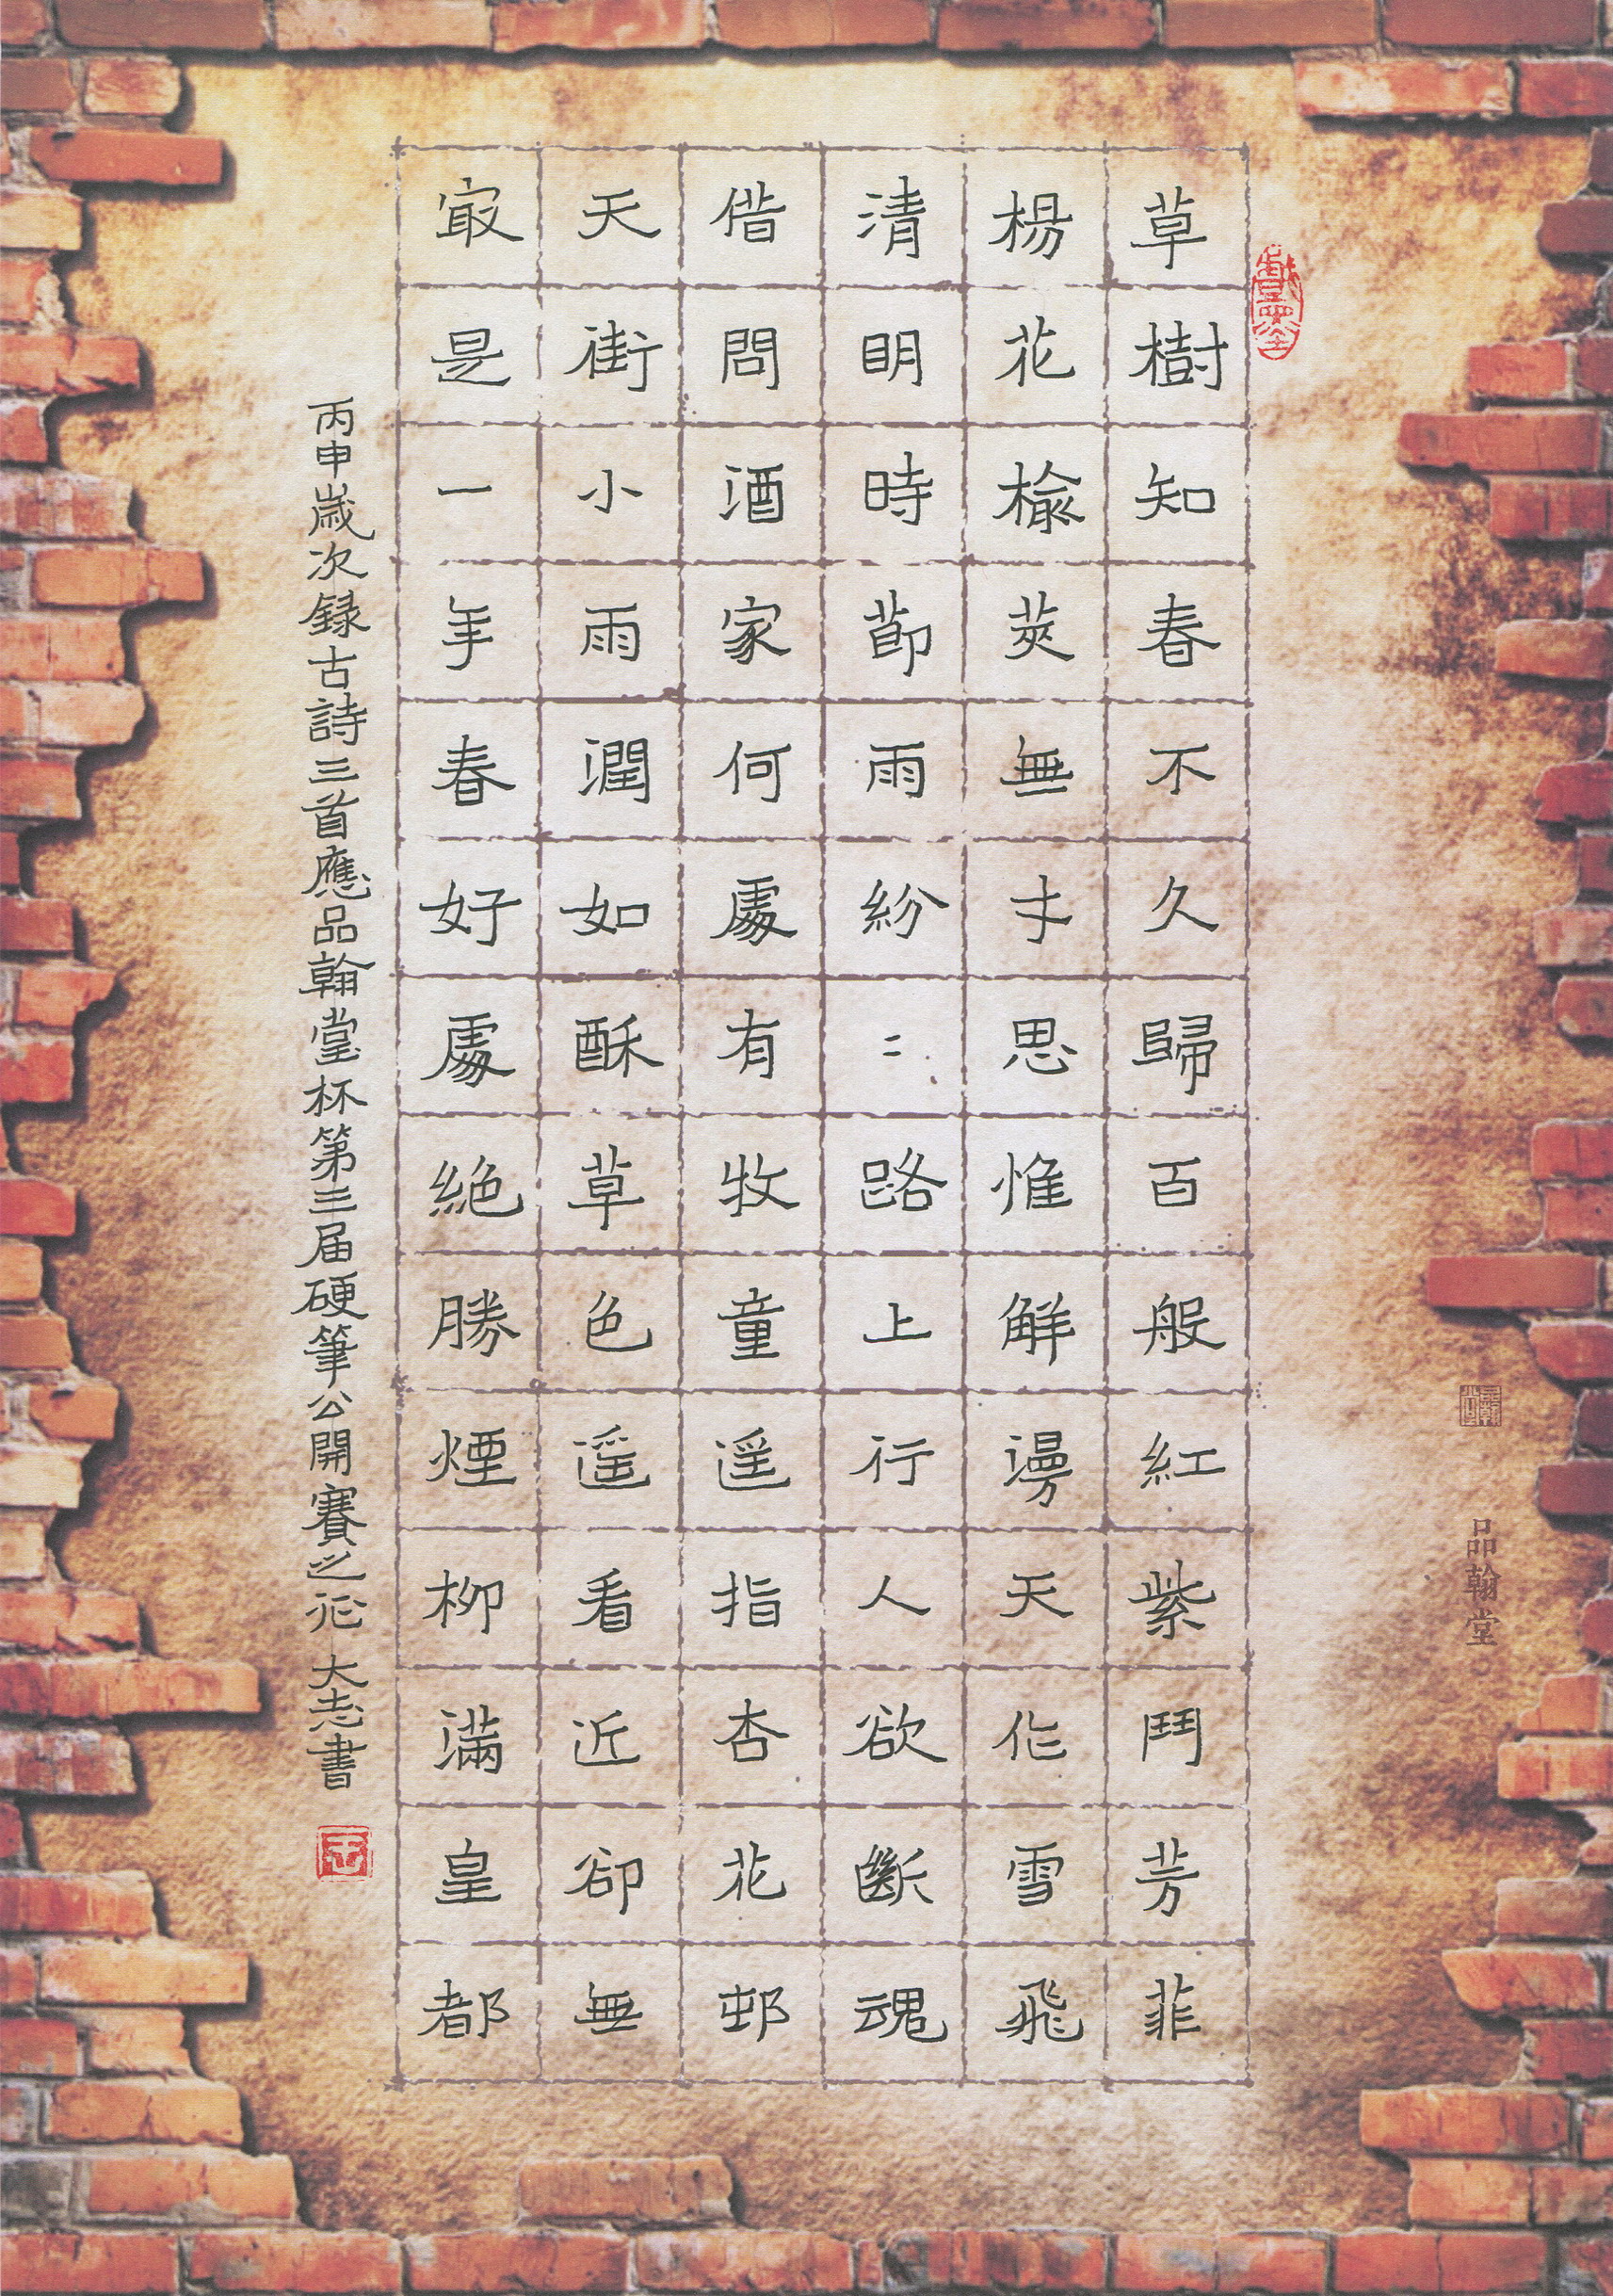 草樹知春不久歸百般紅紫鬥芳菲
楊花榆莢無才思惟解漫天作雪飛
清明時節雨紛〻路上行人欲斷魂
借問酒家何處有牧童遥指杏花邨
天街小雨潤如酥草色遥看近卻無
㝡是一年春好處絕勝煙柳滿皇都
丙申歲次録古詩三首應品翰堂杯第三届硬筆公開賽之征 大志書
品翰堂